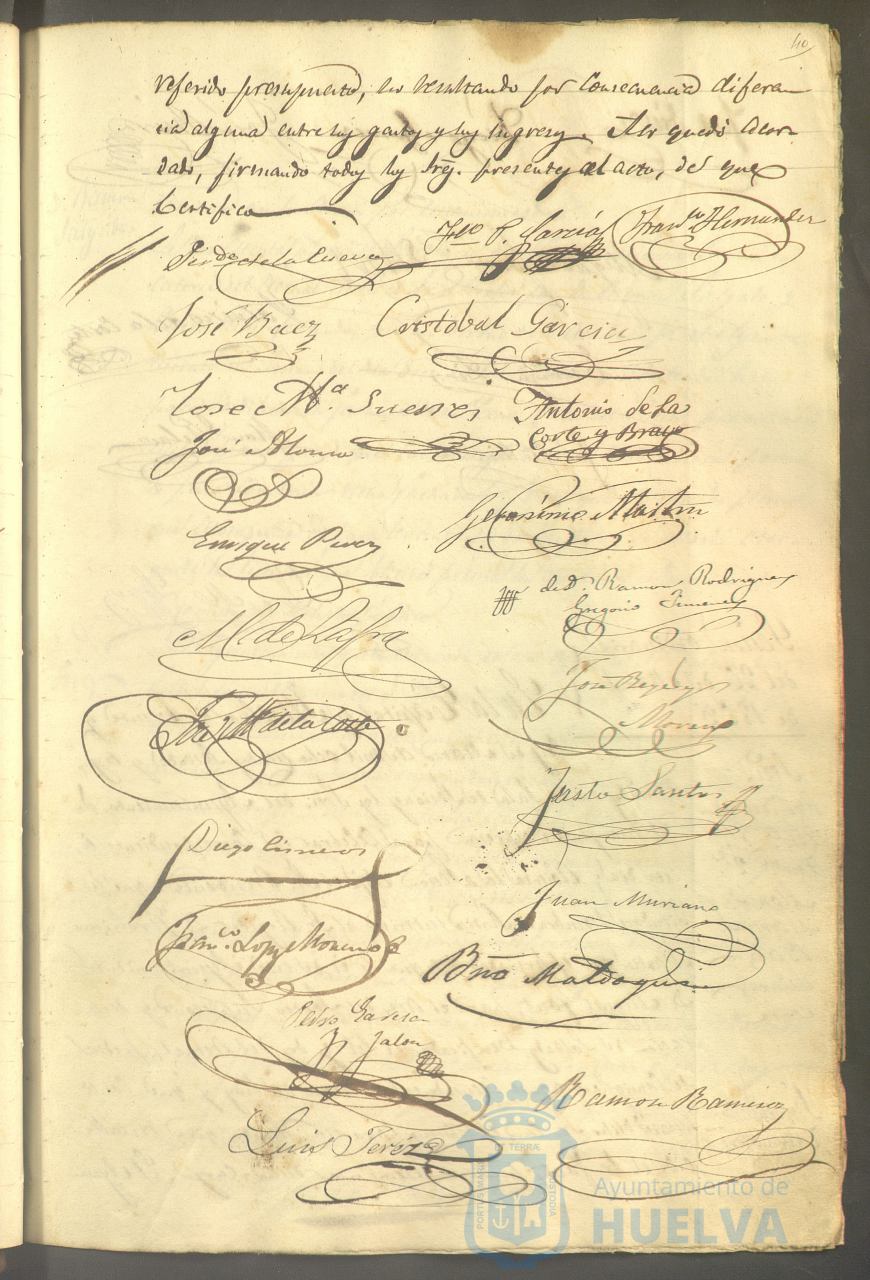 40
referido presupuesto, no resultando por consecuencia diferen
cia alguna entre los gastos y los ingresos. Asi quedó acor
dado, firmando todos los Sres. presentes al acto, de que
Certifico
Fern.do de la Cueva
Fco P. García
Fran.co Hernandez
José Baez
Cristobal Garcia
Jose M.a Suerres
Antonio de La
Corte y Bravo
José Alonso
Gerónimo Martin
Enrique Perez
de D. Ramon Rodriguez
Gregorio Jimenez
M. de la
José
Moreno
de la Corte
Justo Santos
Diego Cisneros
Juan Muriano
Fran.co Lopz Moreno
Bño
Pedro Garcia
Jalon
Ramon Ramirez
Luis Peréz
PORTUS MARIS ET TERRÆ CUSTODIA
Ayuntamiento de
HUELVA